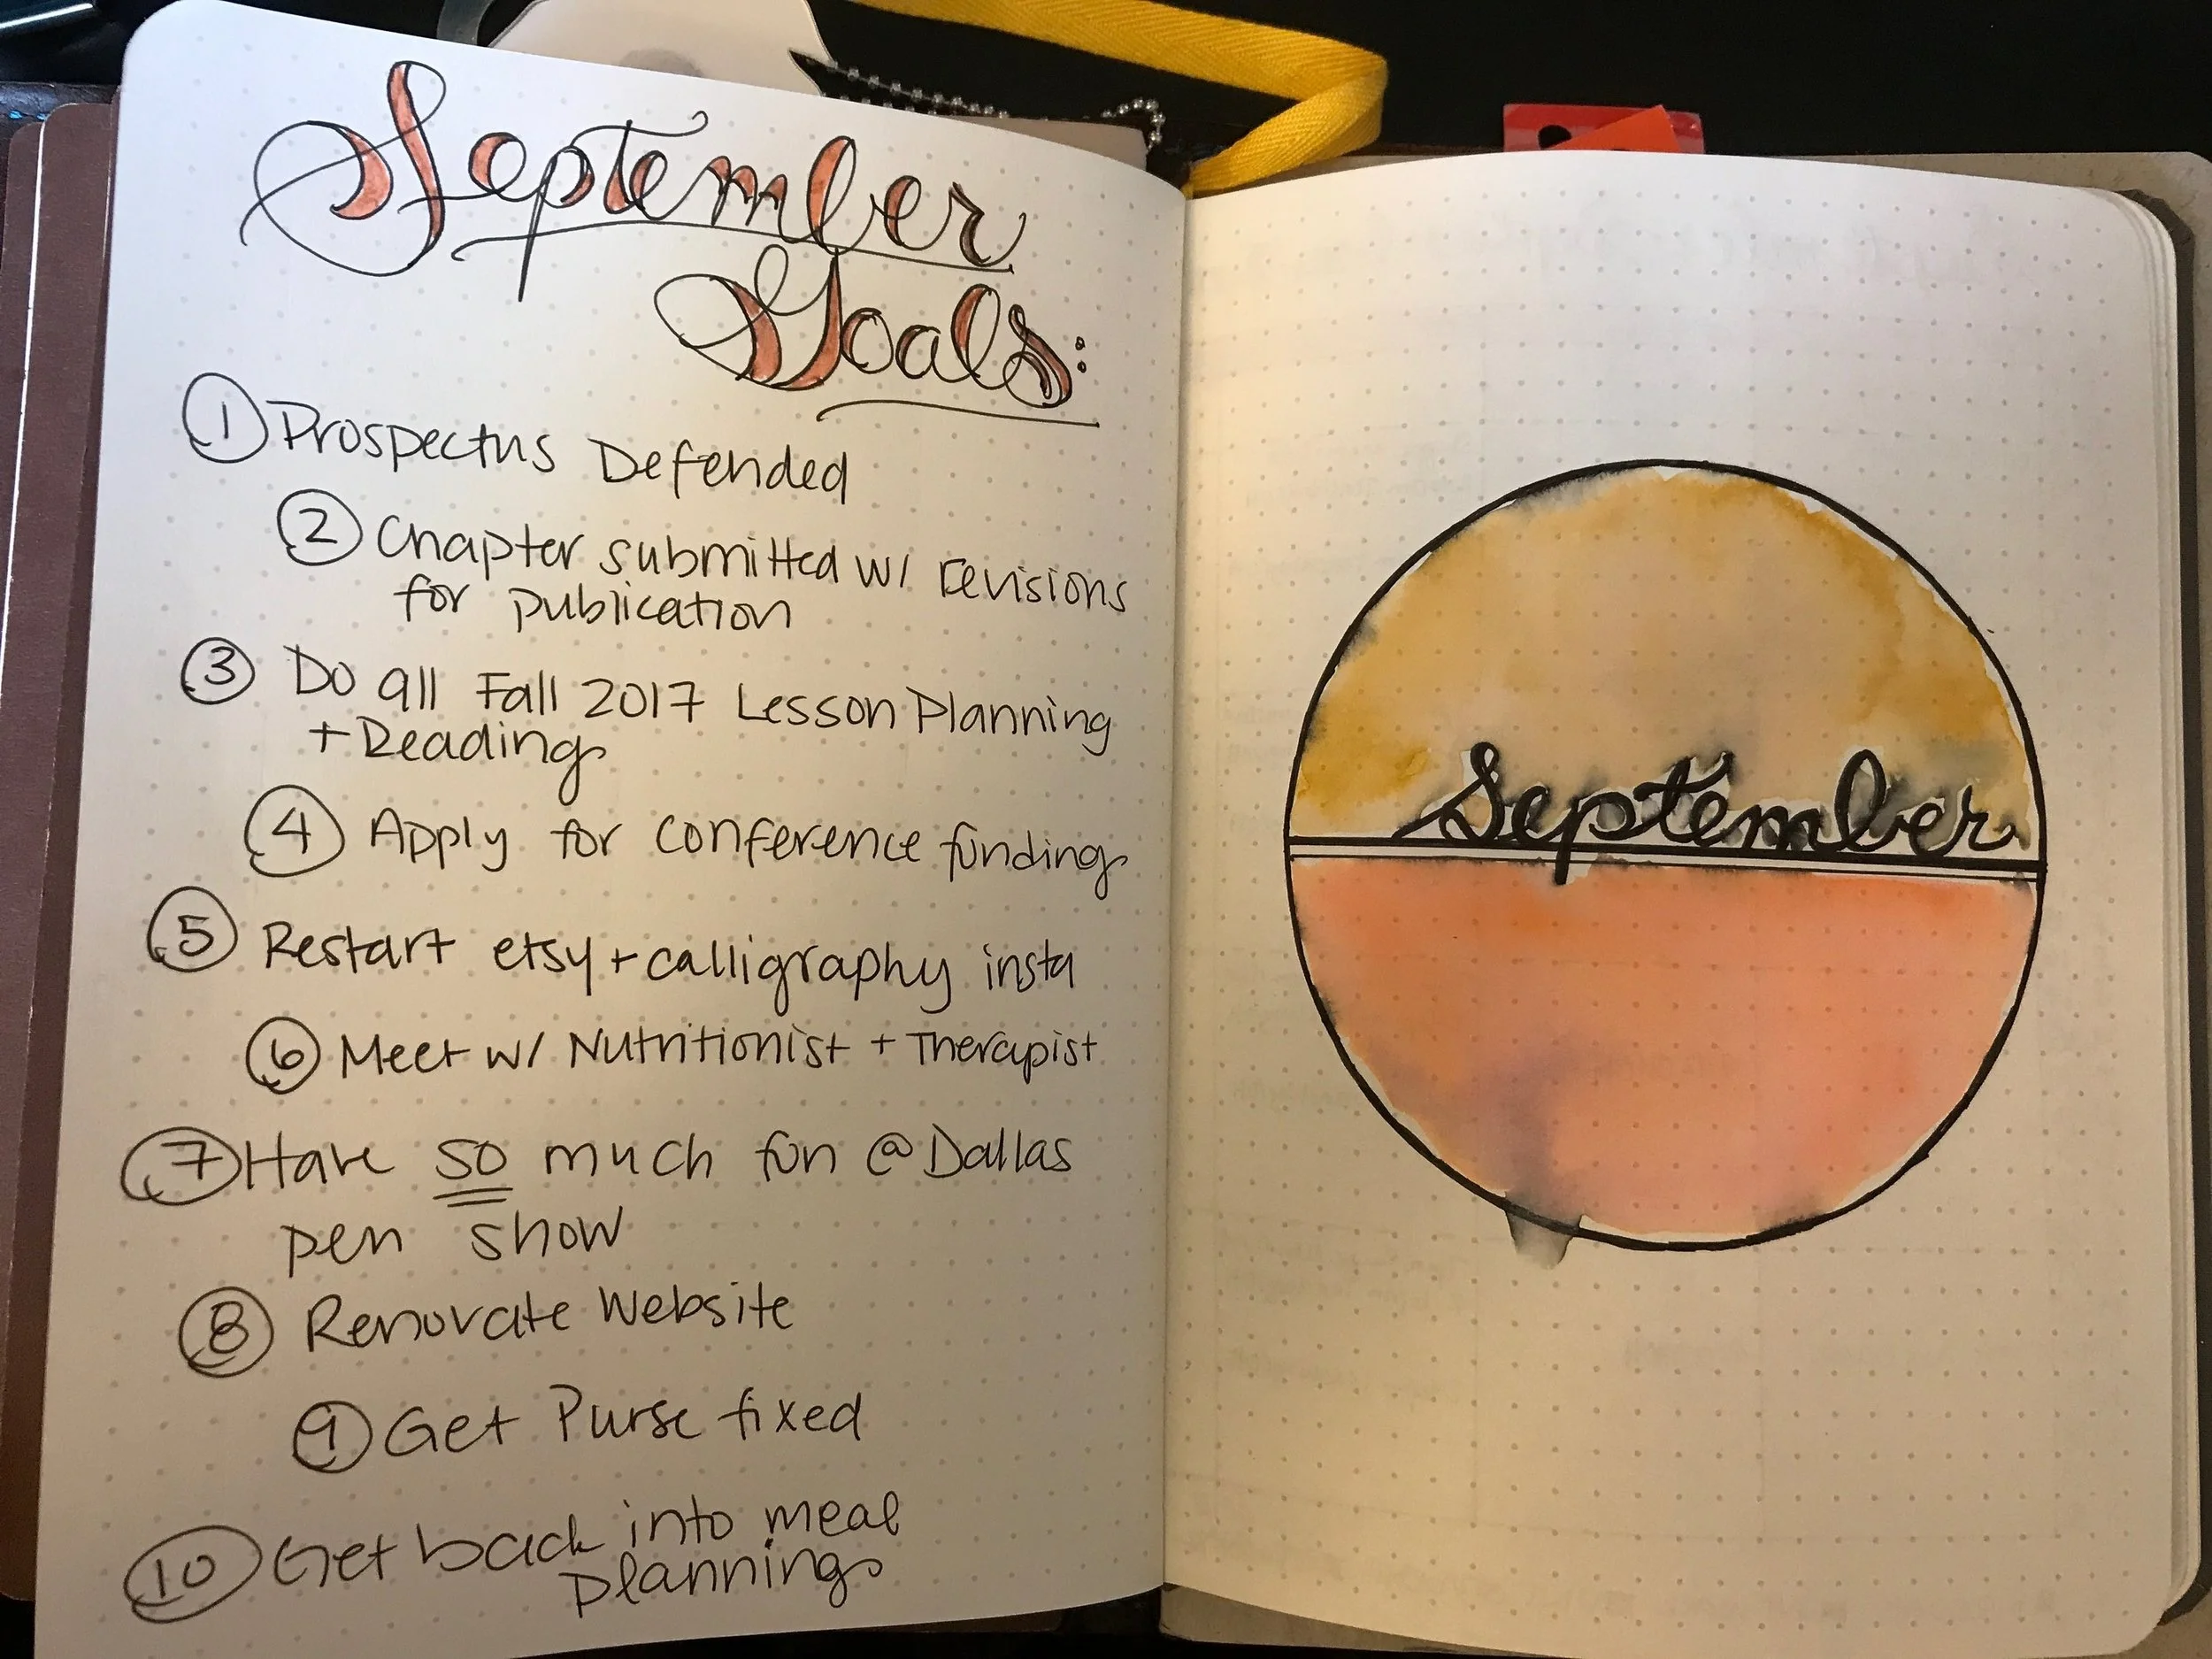 September
Goals:
① Prospectus Defended
② Chapter submitted w/ revisions
for publication
③ Do all Fall 2017 Lesson Planning
+ Reading
④ Apply for conference funding
⑤ Restart etsy + calligraphy insta
⑥ Meet w/ Nutritionist + Therapist
⑦ Have so much fun @ Dallas
pen show
⑧ Renovate Website
⑨ Get Purse fixed
⑩ Get back into meal
planning
September